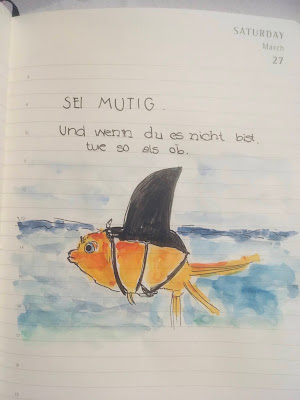 SATURDAY
March
27
SEI MUTIG.
Und wenn du es nicht bist,
tue so als ob.